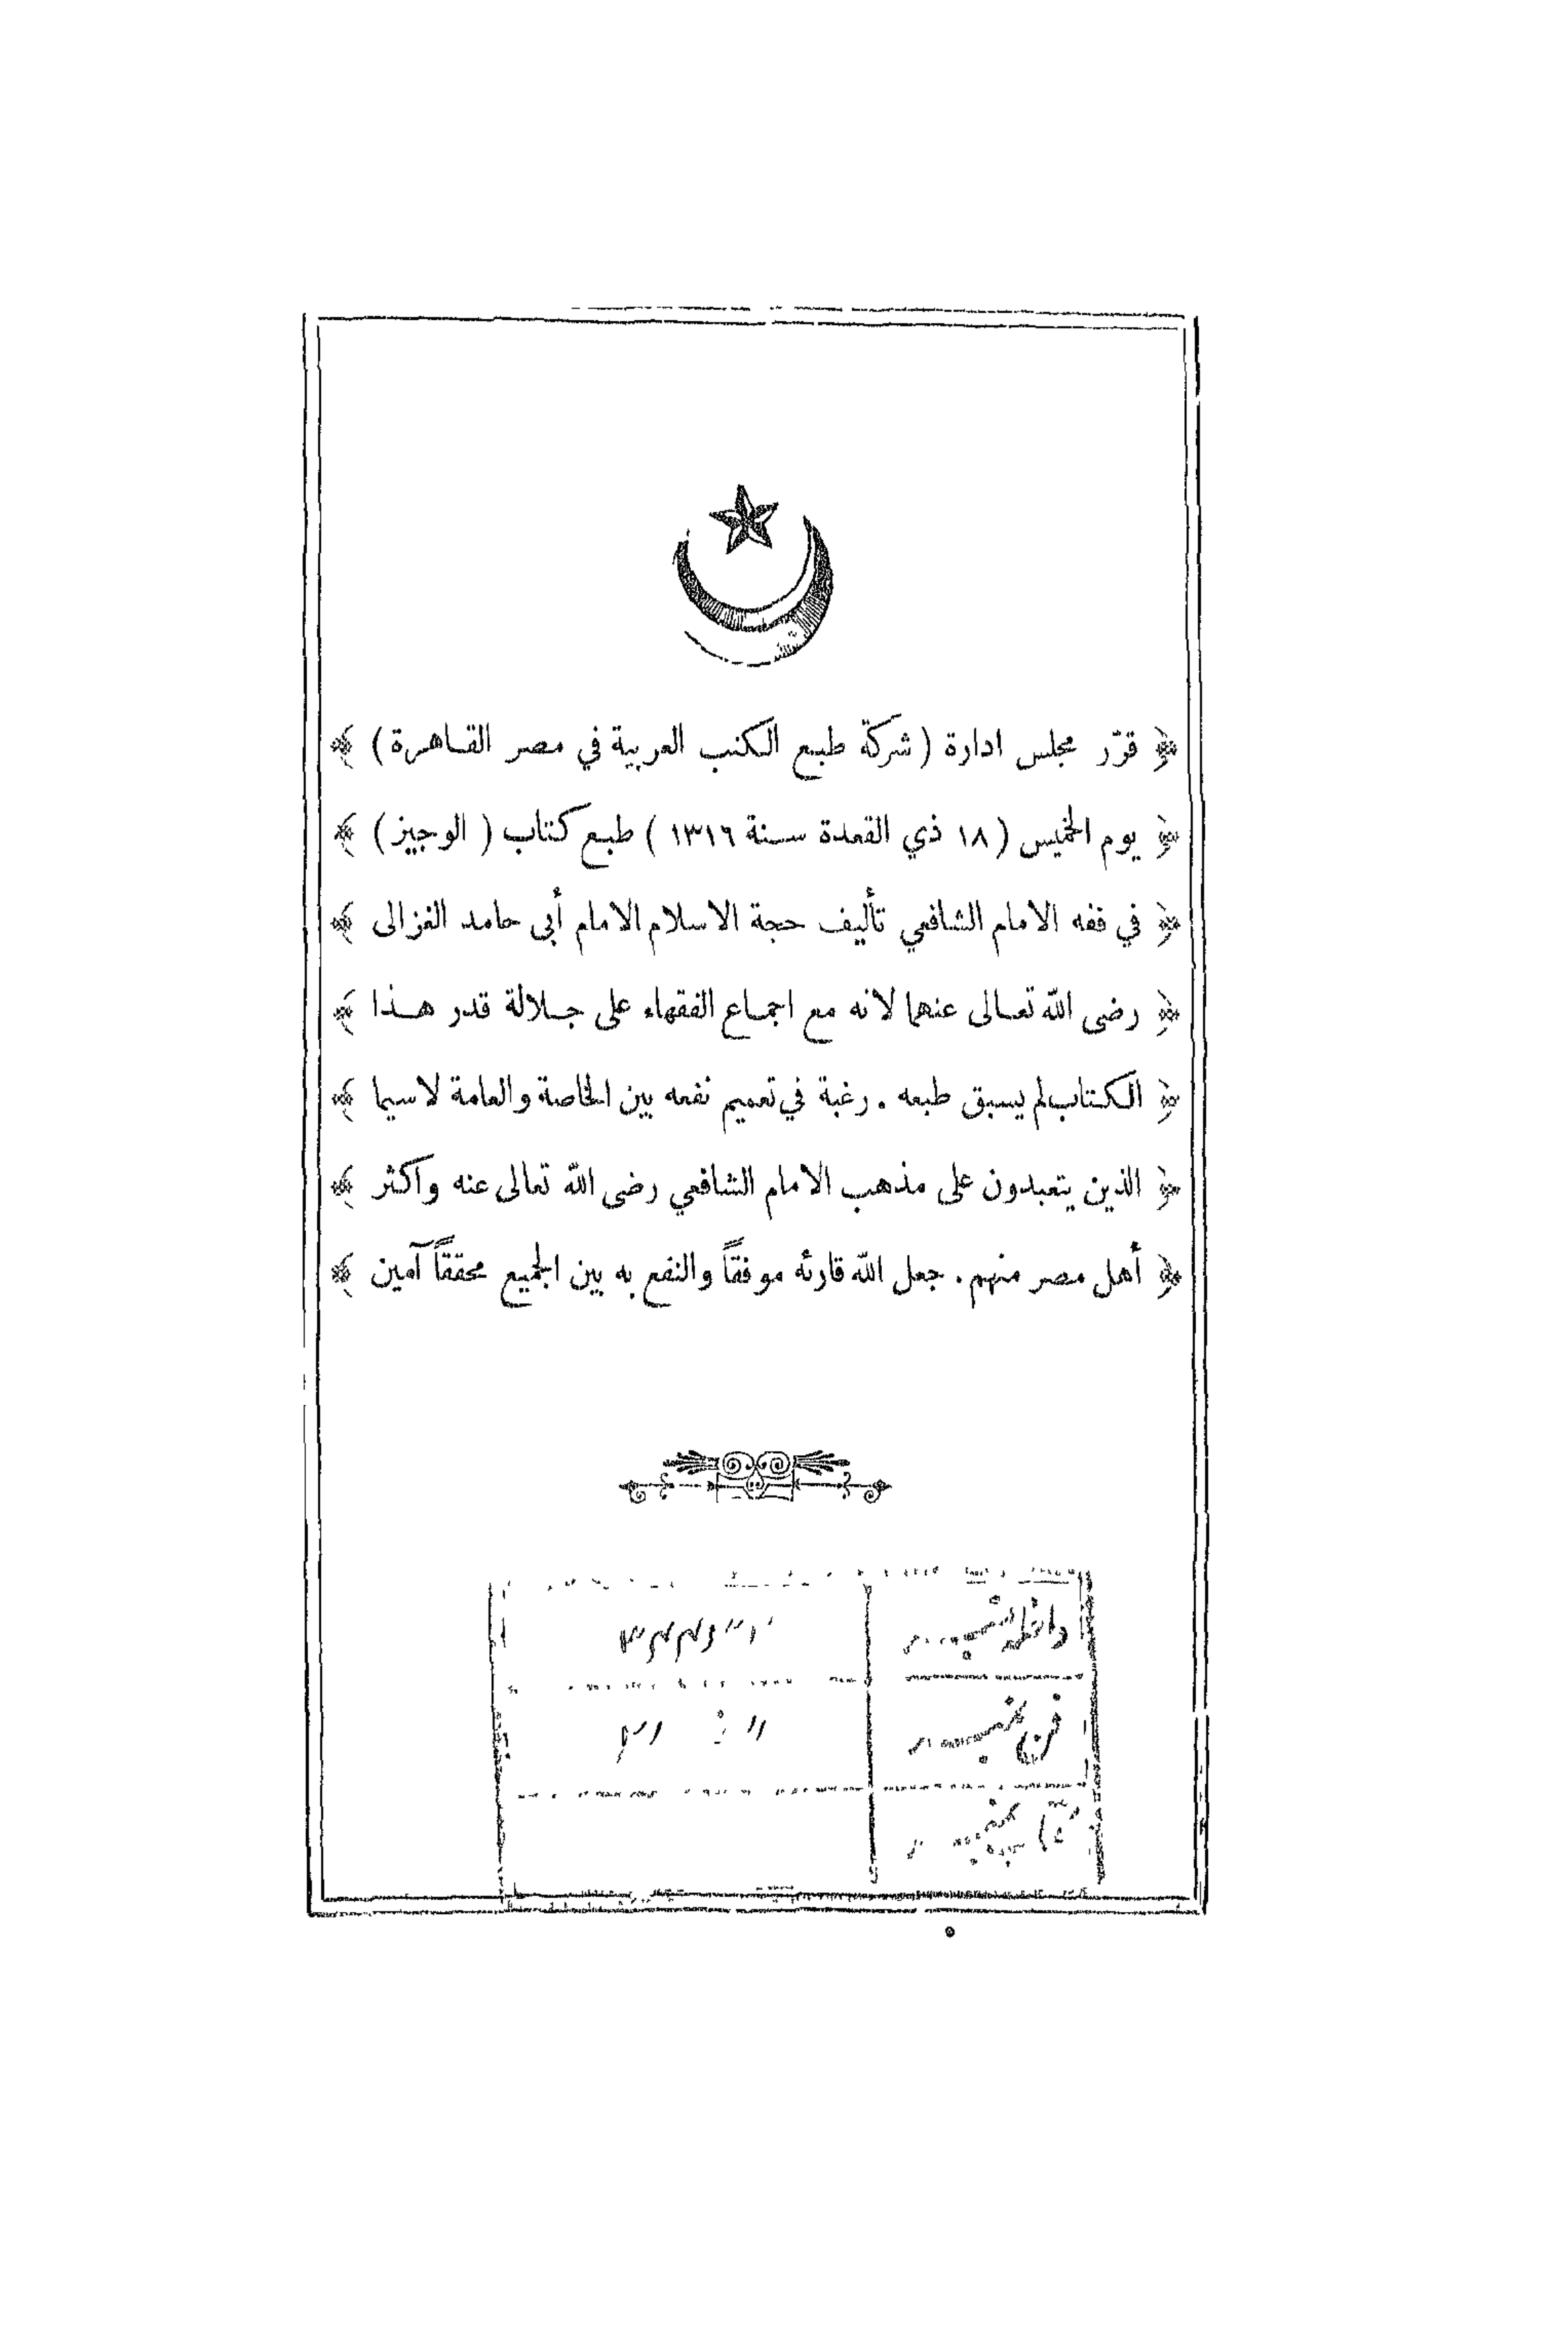 ﴿ قرّر مجلس ادارة ( شركة طبع الكتب العربية في مصر القاهرة ) ﴾
﴿ يوم الخميس ( ١٨ ذي القعدة سنة ١٣١٦ ) طبع كتاب ( الوجيز ) ﴾
﴿ في فقه الامام الشافعي تأليف حجة الاسلام الامام أبى حامد الغزالى ﴾
﴿ رضى الله تعالى عنهما لانه مع اجماع الفقهاء على جلالة قدر هذا ﴾
﴿ الكتاب لم يسبق طبعه . رغبة في تعميم نفعه بين الخاصة والعامة لاسيما ﴾
﴿ الذين يتعبدون على مذهب الامام الشافعي رضى الله تعالى عنه واكثر ﴾
﴿ أهل مصر منهم . جعل الله قارئه موفقاً والنفع به بين الجميع محققاً آمين ﴾